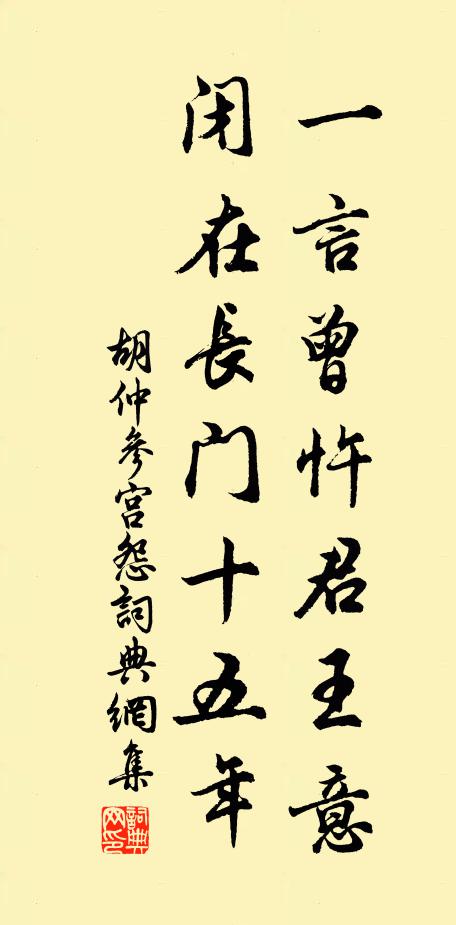 一言曾忤君王意
闭在長门十五年
胡仲參宫怨詞典網集
詞典网印